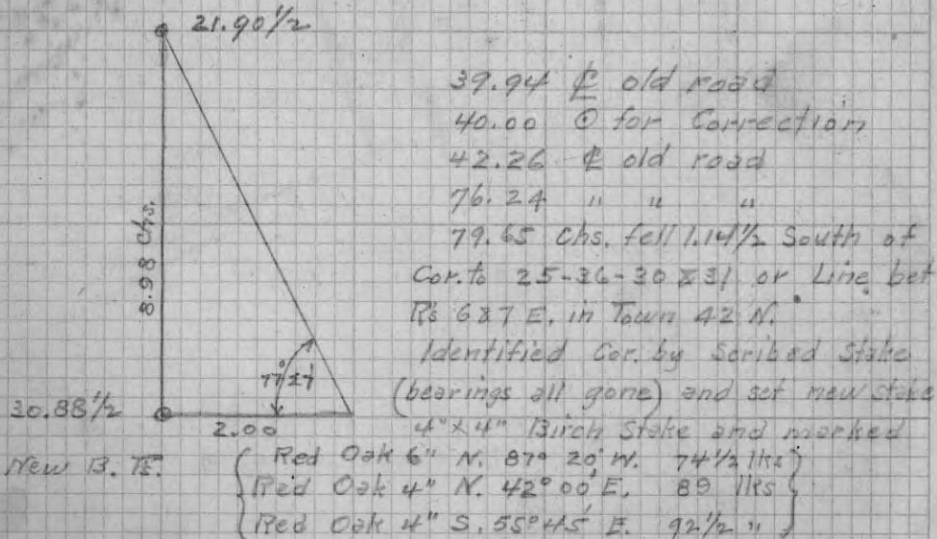 21.90 1/2
39.94 ₵ old road
40.00 ⊙ for Correction
42.26 ₵ old road
76.24 " " "
79.65 chs. fell 1.14 1/2 South of
Cor. to 25-36-30 & 31 on Line bet
R's 6 & 7 E. in Town 42 N.
Identified Cor. by Scribed Stake
(bearings all gone) and set new stake
4" x 4" Birch Stake and marked
8.98 chs.
77° 27'
30.88 1/2
2.00
New B. Ts.
Red Oak 6" N. 87° 20' W. 74 1/2 lks
Red Oak 4" N. 42° 00' E. 89 lks
Red Oak 4" S. 55° 45' E. 92 1/2 "